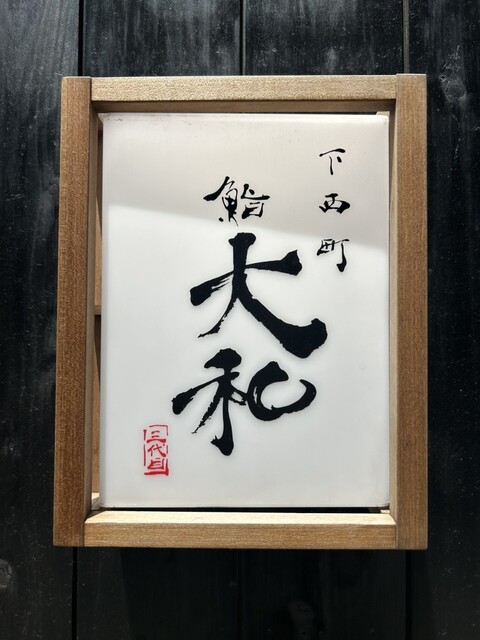 下西町
鮨
大和
三代目